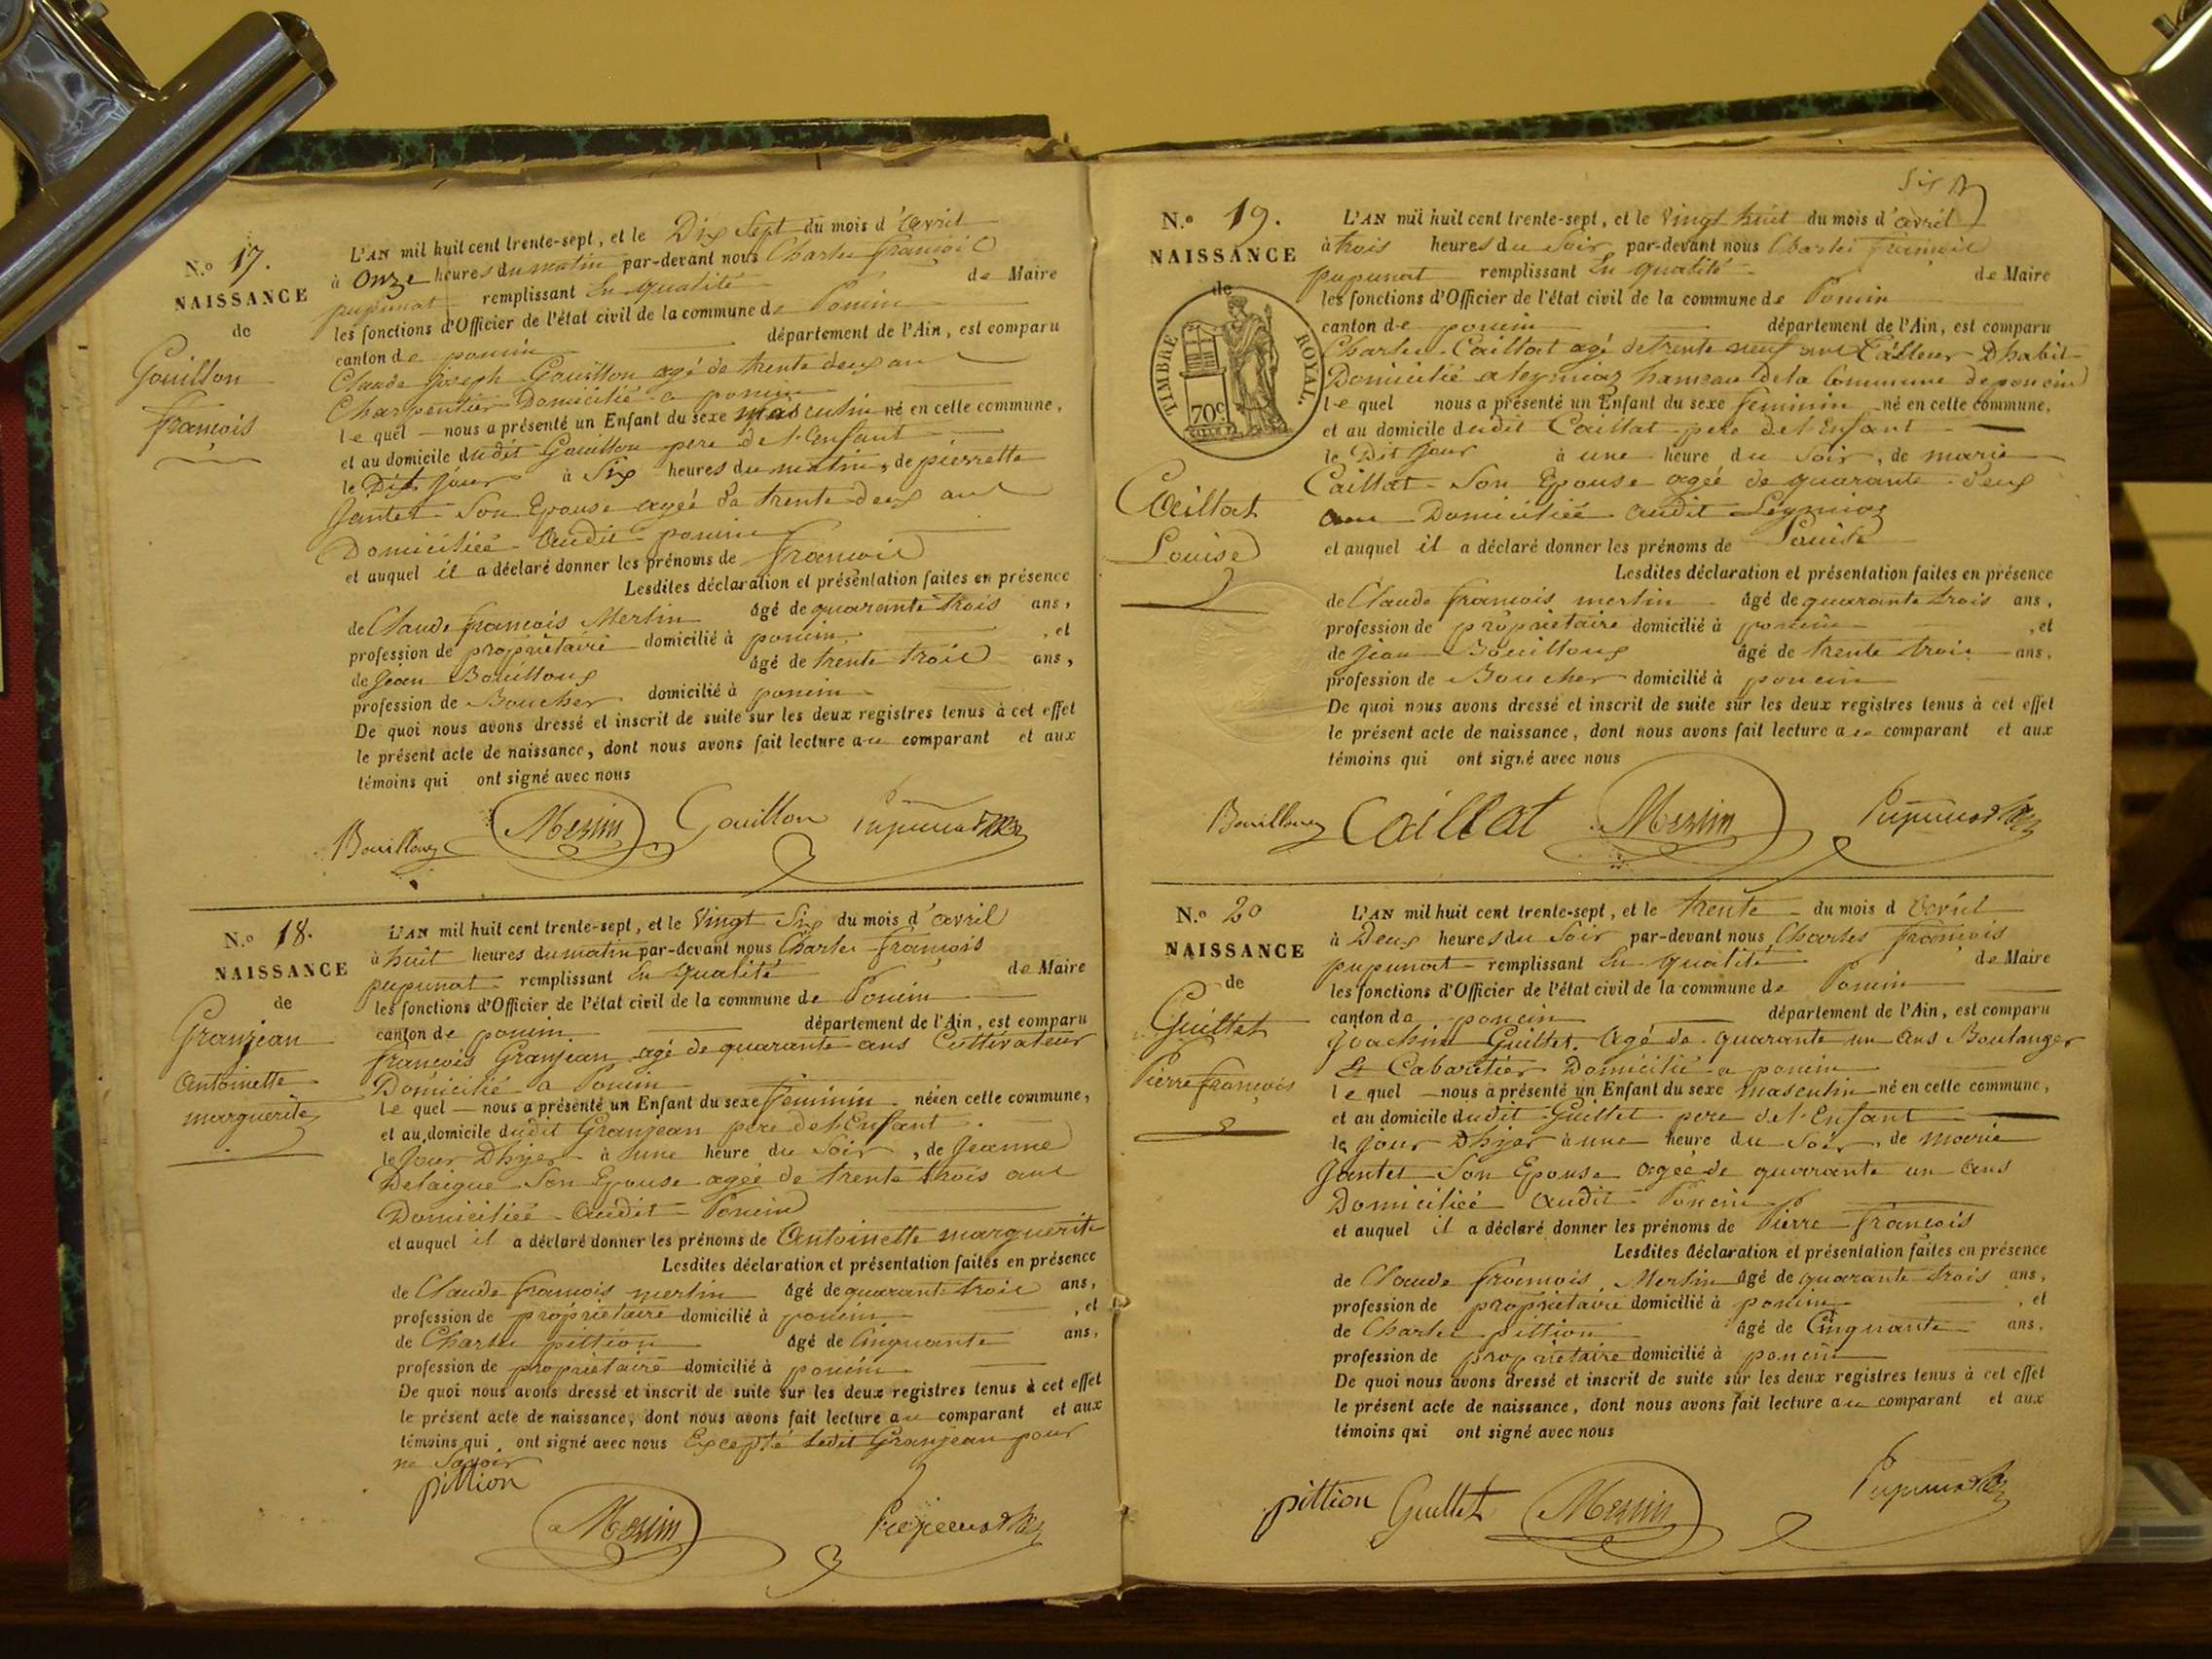 N.º 17.
NAISSANCE
de
Gouillon
françois
L'AN mil huit cent trente-sept, et le Dix Sept du mois d'avril
à Onze heures du matin par-devant nous Charles françois
pupunat remplissant En qualité de Maire
les fonctions d'Officier de l'état civil de la commune de Poncin
canton de poncin département de l'Ain, est comparu
Claude joseph Gouillon agé de trente deux ans
Charpentier Domicilié a poncin
le quel nous a présenté un Enfant du sexe masculin né en cette commune,
et au domicile dudit Gouillon pere de l'enfant
le Dit jour à Six heures du matin, de pierrette
Jantet Son Epouse agée de trente deux ans
Domiciliée audit poncin
et auquel il a déclaré donner les prénoms de françois
Lesdites déclaration et présentation faites en présence
de Claude françois Merlin âgé de quarante trois ans,
profession de propriétaire domicilié à poncin, et
de jean Bouilloux âgé de trente trois ans,
profession de Boucher domicilié à poncin
De quoi nous avons dressé et inscrit de suite sur les deux registres tenus à cet effet
le présent acte de naissance, dont nous avons fait lecture au comparant et aux
témoins qui ont signé avec nous
Bouilloux Merlin Gouillon Pupunat
N.º 18.
NAISSANCE
de
Granjean
Antoinette
marguerite
L'AN mil huit cent trente-sept, et le Vingt Six du mois d'avril
à huit heures du matin par-devant nous Charles françois
pupunat remplissant En qualité de Maire
les fonctions d'Officier de l'état civil de la commune de Poncin
canton de poncin département de l'Ain, est comparu
françois Granjean agé de quarante ans Cultivateur
Domicilié a Poncin
le quel nous a présenté un Enfant du sexe féminin née en cette commune,
et au domicile dudit Granjean pere de l'Enfant
le jour Dhyer à une heure du Soir, de Jeanne
Delaigue Son Epouse agée de trente trois ans
Domiciliée audit Poncin
et auquel il a déclaré donner les prénoms de Antoinette marguerite
Lesdites déclaration et présentation faites en présence
de Claude françois merlin âgé de quarante trois ans,
profession de propriétaire domicilié à poncin, et
de Charles pittion âgé de Cinquante ans,
profession de propriétaire domicilié à poncin
De quoi nous avons dressé et inscrit de suite sur les deux registres tenus à cet effet
le présent acte de naissance, dont nous avons fait lecture au comparant et aux
témoins qui ont signé avec nous Excepté ledit Granjean pour
ne Savoir
pittion
Merlin Pupunat
N.º 19.
NAISSANCE
de
TIMBRE ROYAL.
70c
Caillat
Louise
L'AN mil huit cent trente-sept, et le Vingt huit du mois d'avril
à trois heures du Soir par-devant nous Charles françois
pupunat remplissant En qualité de Maire
les fonctions d'Officier de l'état civil de la commune de Poncin
canton de poncin département de l'Ain, est comparu
Charles Caillat agé de trente neuf ans Tailleur Dhabit
Domicilié a leymiaz hameau de la Commune de poncin
le quel nous a présenté un Enfant du sexe feminin né en cette commune,
et au domicile dudit Caillat pere de l'Enfant
le Dit jour à une heure du Soir, de marie
Caillat Son Epouse agée de quarante deux
ans Domiciliée audit Leymiaz
et auquel il a déclaré donner les prénoms de Louise
Lesdites déclaration et présentation faites en présence
de Claude françois merlin âgé de quarante trois ans,
profession de propriétaire domicilié à poncin, et
de jean Bouilloux âgé de trente trois ans,
profession de Boucher domicilié à poncin
De quoi nous avons dressé et inscrit de suite sur les deux registres tenus à cet effet
le présent acte de naissance, dont nous avons fait lecture au comparant et aux
témoins qui ont signé avec nous
Bouilloux Caillat Merlin Pupunat
N.º 20
NAISSANCE
de
Guillet
Pierre françois
L'AN mil huit cent trente-sept, et le trente du mois d avril
à Deux heures du Soir par-devant nous Charles françois
pupunat remplissant En qualité de Maire
les fonctions d'Officier de l'état civil de la commune de Poncin
canton de poncin département de l'Ain, est comparu
joachim Guillet agé de quarante un ans Boulanger
Et Cabaretier Domicilié a poncin
le quel nous a présenté un Enfant du sexe masculin né en cette commune,
et au domicile dudit Guillet pere de l'Enfant
le jour Dhyer à une heure du Soir, de marie
Jantet Son Epouse agée de quarante un ans
Domiciliée audit Poncin
et auquel il a déclaré donner les prénoms de Pierre françois
Lesdites déclaration et présentation faites en présence
de Claude françois Merlin âgé de quarante trois ans,
profession de propriétaire domicilié à poncin, et
de Charles pittion âgé de Cinquante ans,
profession de propriétaire domicilié à poncin
De quoi nous avons dressé et inscrit de suite sur les deux registres tenus à cet effet
le présent acte de naissance, dont nous avons fait lecture au comparant et aux
témoins qui ont signé avec nous
pittion Guillet Merlin Pupunat